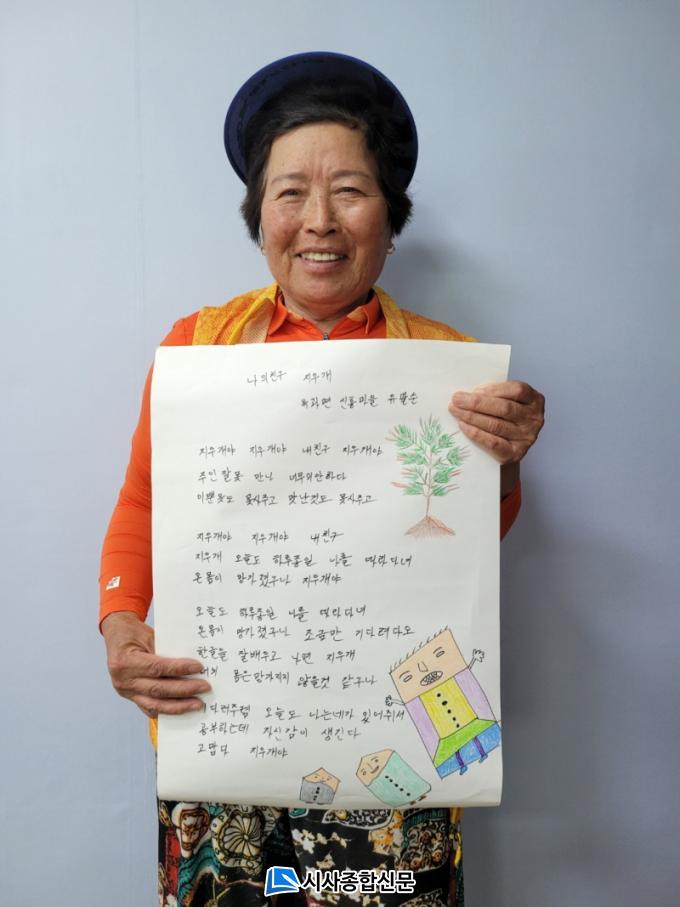 나의친구 지우개
옥과면 신흥마을 유별순
지우개야 지우개야 내친구 지우개야
주인 잘못 만나 너무미안하다
이쁜옷도 못사주고 맛난것도 못사주고
지우개야 지우개야 내친구
지우개 오늘도 하루종일 나를 따라다녀
온몸이 망가졌구나 지우개야
오늘도 하루종일 나를 따라다녀
온몸이 망가졌구나 조금만 기다려다오
한글을 잘배우고 나면 지우개
너의 몸은망가지지 않을것 같구나
오늘도 나는네가 있어주셔
공부하는데 자신감이 생긴다
고맙다 지우개야
시사종합신문